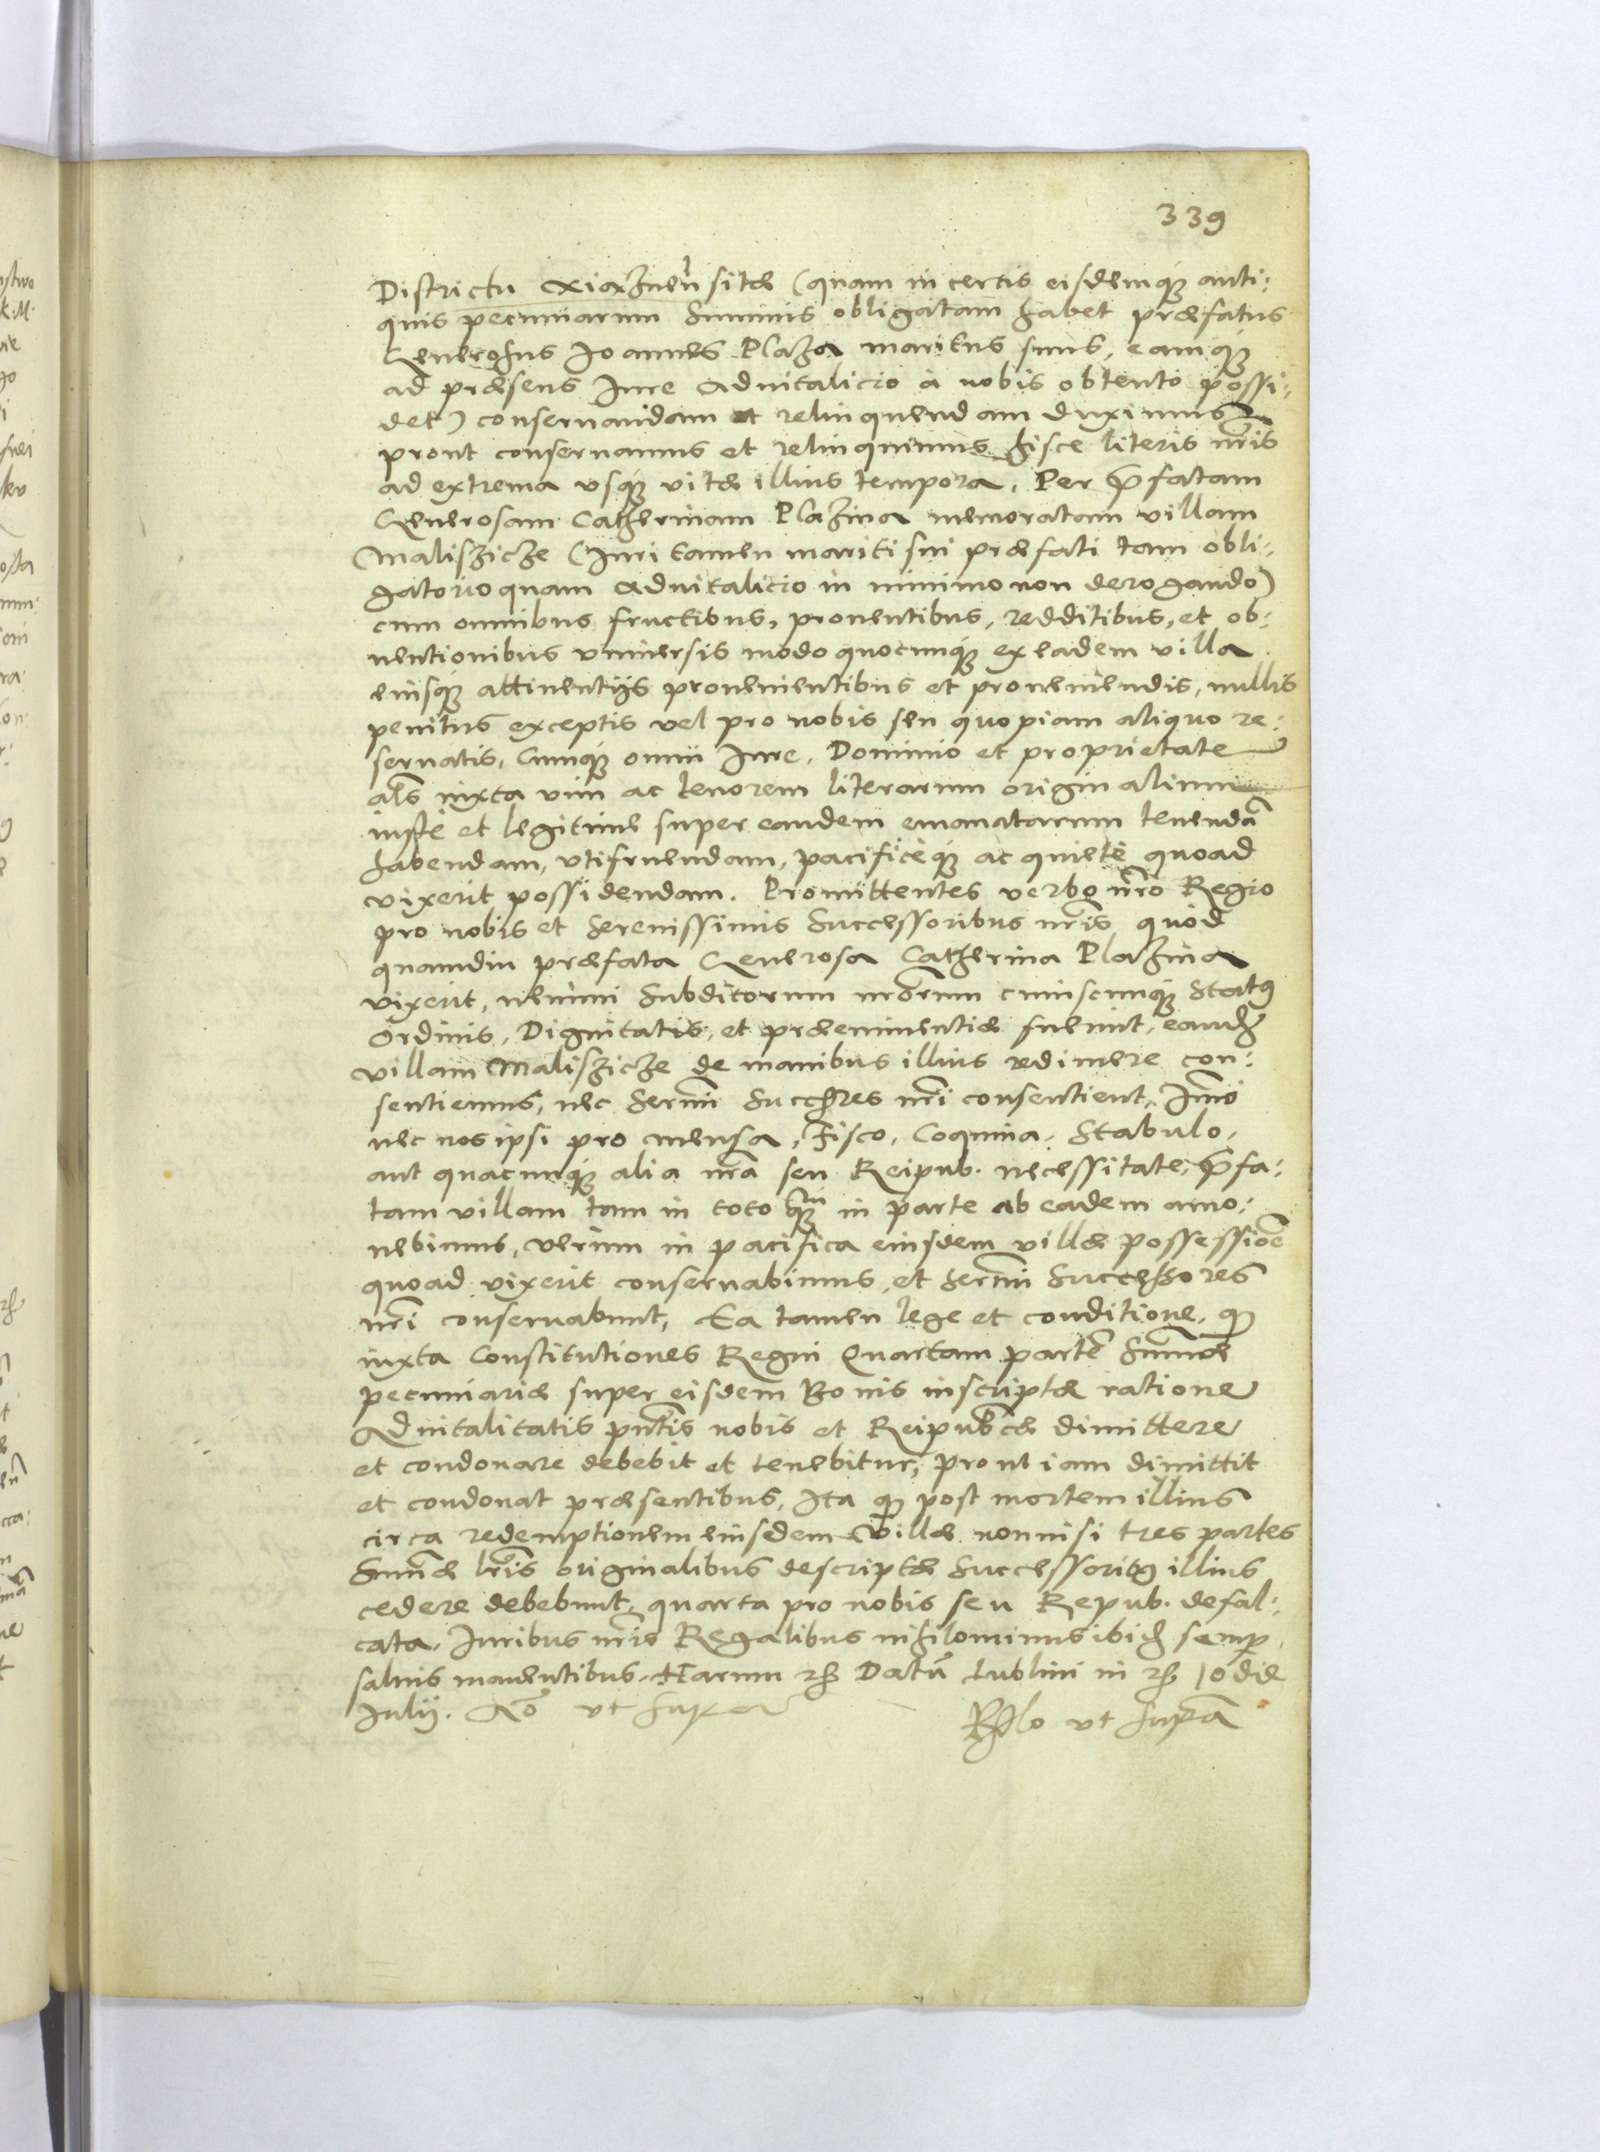 339
Districtu Xiaznen̄ sitæ (quam in certis eisdemque anti:
quis pecuniarum summis obligatam habet præfatus
Generosus Joannes Plaza maritus suus, eamque
ad præsens Iure advitalicio à nobis obtento possi:
det) conservandam et relinquendam duximus
prout conservamus et relinquimus hisce literis nr̃is
ad extrema usque vitæ illius tempora. Per p̃fatam
Generosam Catherinam Plazina memoratam villam
Maliszicze (Iuri tamen mariti sui præfati tam obli:
gatorio quam advitalicio in minimo non derogando)
cum omnibus fructibus, proventibus, redditibus, et ob:
ventionibus universis modo quocunque ex eadem villa
eiusque attinentijs provenientibus et proveniendis, nullis
penitus exceptis vel pro nobis seu quopiam aliquo re:
servatis, Cumque omni Iure, Dominio et proprietate
als̃ iuxta vim ac tenorem literarum originalium
iustè et legitime super eandem emanatarum tenendã
habendam, utifruendam, pacificèque ac quietè quoad
vixerit possidendam. Promittentes verbo nr̃o Regio
pro nobis et Serenissimis Successoribus nr̃is, quòd
quamdiu præfata Generosa Catherina Plazina
vixerit, nemini Subditorum nr̃orum cuiuscunque Status
Ordinis, Dignitatis, et præeminentiæ fuerint, eandem
villam Maliszicze de manibus illius redimere con:
sentiemus, nec Serm̃i Succ̃res nr̃i consentient, Imò
nec nos ipsi pro mensa, Fisco, Coquina, Stabulo,
aut quacunque alia nr̃a seu Reipub. necessitate, p̃fa:
tam villam tam in toto quam in parte ab eadem amo:
vebimus, verum in pacifica eiusdem villæ possessiõe
quoad vixerit conservabimus, et Serm̃i Successores
nr̃i conservabunt, Ea tamen lege et conditione, quod
iuxta Constitutiones Regni Quartam partẽ Sum̃æ
pecuniariæ super eisdem Bonis inscriptæ ratione
Advitalitatis pñtis nobis et Reipub̃cæ dimittere
et condonare debebit et tenebitur, prout iam dimittit
et condonat præsentibus, Ita quod post mortem illius
circa redemptionem eiusdem villæ nonnisi tres partes
Sum̃æ lr̃is originalibus descriptæ Successoribus illius
cedere debebunt, quarta pro nobis seu Repub. defal:
cata. Iuribus nr̃is Regalibus nihilominus ibidem semp̱
salvis manentibus. Harum etc. Datũ Lublini in etc. 10 die
Julij. Aõ ut supra
Rl̃o ut suprà